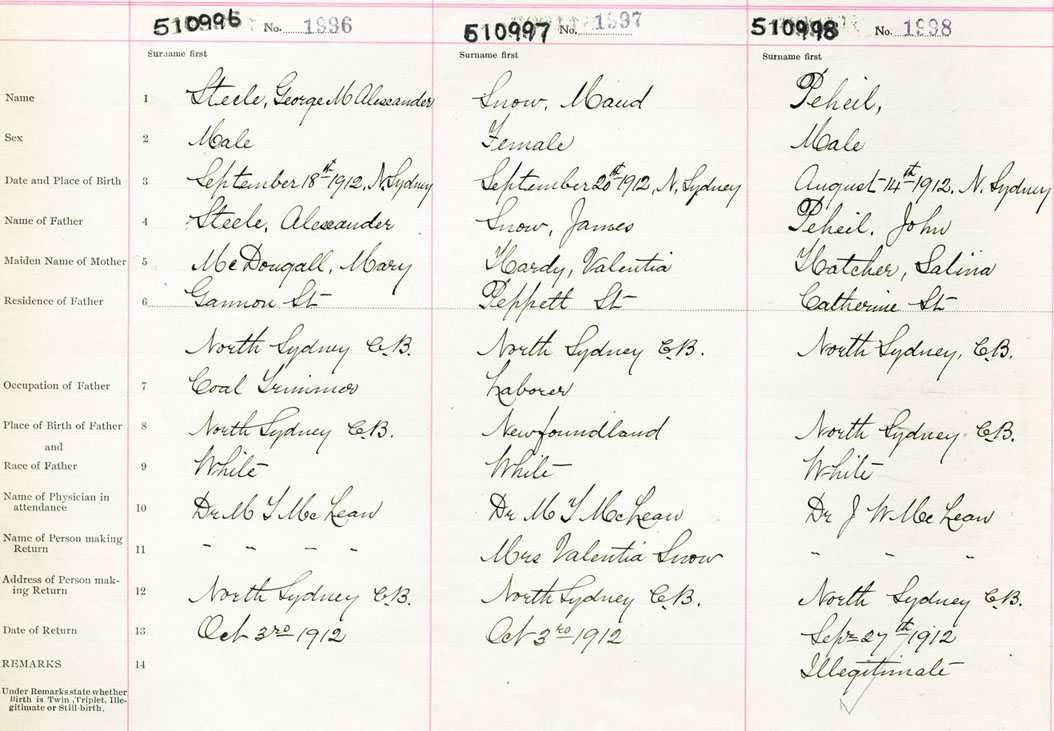 510996 No. 1996 510997 No. 1997 510998 No. 1998
Surname first Surname first Surname first
Name 1 Steele, George M Alexander Snow, Maud Peheil,
Sex 2 Male Female Male
Date and Place of Birth 3 September 18th 1912, N. Sydney September 20th 1912, N, Sydney August 14th 1912, N. Sydney
Name of Father 4 Steele, Alexander Snow, James Peheil, John
Maiden Name of Mother 5 McDougall, Mary Hardy, Valentia Hatcher, Salina
Residence of Father 6 Gannon St Peppett St Catherine St
North Sydney C.B. North Sydney C.B. North Sydney, C.B.
Occupation of Father 7 Coal Trimmer Laborer
Place of Birth of Father 8 North Sydney C.B. Newfoundland North Sydney. C.B.
and
Race of Father 9 White White White
Name of Physician in
attendance 10 Dr M T McLean Dr M T McLean Dr J W McLean
Name of Person making
Return 11 " " " " Mrs Valentia Snow " " "
Address of Person mak-
ing Return 12 North Sydney C.B. North Sydney C.B. North Sydney C.B.
Date of Return 13 Oct 3rd 1912 Oct 3rd 1912 Sept 27th 1912
REMARKS 14 Illegitimate
Under Remarks state whether
Birth is Twin, Triplet, Ille-
gitimate or Still-birth.